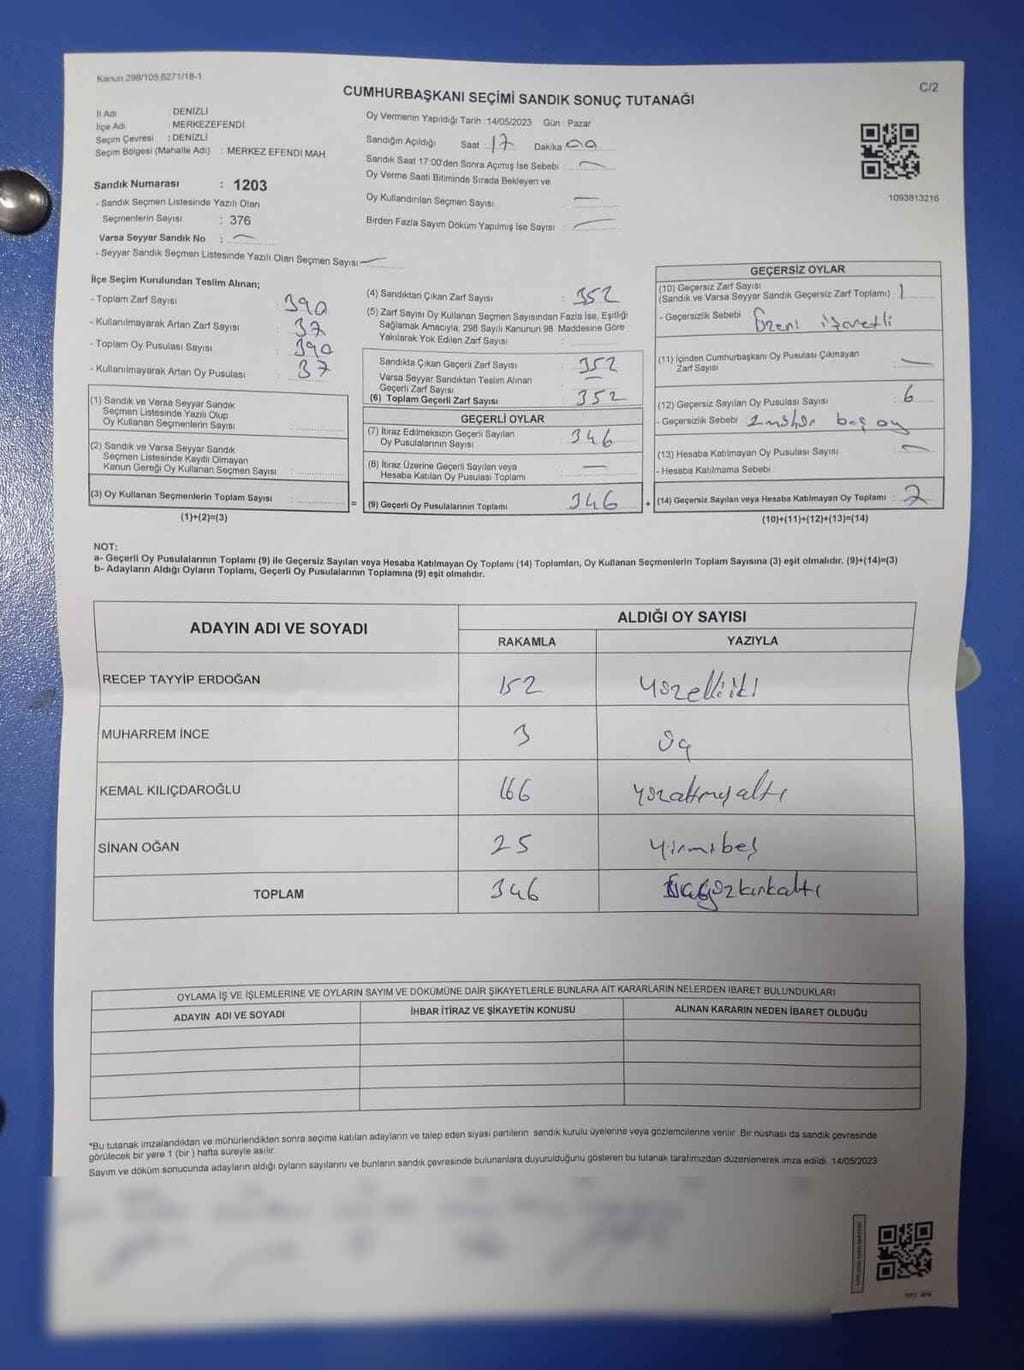 Kanun 298/105:6271/18-1
C/2
CUMHURBAŞKANI SEÇİMİ SANDIK SONUÇ TUTANAĞI
İl Adı : DENİZLİ
İlçe Adı : MERKEZEFENDİ
Seçim Çevresi : DENİZLİ
Seçim Bölgesi (Mahalle Adı) : MERKEZ EFENDİ MAH
Oy Vermenin Yapıldığı Tarih :14/05/2023 Gün : Pazar
Sandığın Açıldığı Saat 17 Dakika 00
Sandık Saat 17:00'den Sonra Açımış İse Sebebi :
Oy Verme Saati Bitiminde Sırada Bekleyen ve
Oy Kullandırılan Seçmen Sayısı
Birden Fazla Sayım Döküm Yapılmış İse Sayısı :
1093813216
Sandık Numarası : 1203
- Sandık Seçmen Listesinde Yazılı Olan
Seçmenlerin Sayısı : 376
Varsa Seyyar Sandık No :
- Seyyar Sandık Seçmen Listesinde Yazılı Olan Seçmen Sayısı
İlçe Seçim Kurulundan Teslim Alınan;
- Toplam Zarf Sayısı 390
- Kullanılmayarak Artan Zarf Sayısı 37
- Toplam Oy Pusulası Sayısı 390
- Kullanılmayarak Artan Oy Pusulası 37
(1) Sandık ve Varsa Seyyar Sandık
Seçmen Listesinde Yazılı Olup
Oy Kullanan Seçmenlerin Sayısı
(2) Sandık ve Varsa Seyyar Sandık
Seçmen Listesinde Kayıtlı Olmayan
Kanun Gereği Oy Kullanan Seçmen Sayısı
(3) Oy Kullanan Seçmenlerin Toplam Sayısı :
(1)+(2)=(3)
(4) Sandıktan Çıkan Zarf Sayısı : 352
(5) Zarf Sayısı Oy Kullanan Seçmen Sayısından Fazla İse, Eşitliği
Sağlamak Amacıyla, 298 Sayılı Kanunun 98. Maddesine Göre
Yakılarak Yok Edilen Zarf Sayısı
Sandıkta Çıkan Geçerli Zarf Sayısı : 352
Varsa Seyyar Sandıktan Teslim Alınan
Geçerli Zarf Sayısı
(6) Toplam Geçerli Zarf Sayısı : 352
GEÇERLİ OYLAR
(7) İtiraz Edilmeksizin Geçerli Sayılan
Oy Pusulalarının Sayısı 346
(8) İtiraz Üzerine Geçerli Sayılan veya
Hesaba Katılan Oy Pusulası Toplamı
= (9) Geçerli Oy Pusulalarının Toplamı 346 +
GEÇERSİZ OYLAR
(10) Geçersiz Zarf Sayısı
(Sandık ve Varsa Seyyar Sandık Geçersiz Zarf Toplamı) 1
- Geçersizlik Sebebi Üzeri işaretli
(11) İçinden Cumhurbaşkanı Oy Pusulası Çıkmayan
Zarf Sayısı
(12) Geçersiz Sayılan Oy Pusulası Sayısı 6
- Geçersizlik Sebebi boş oy
(13) Hesaba Katılmayan Oy Pusulası Sayısı
- Hesaba Katılmama Sebebi
(14) Geçersiz Sayılan veya Hesaba Katılmayan Oy Toplamı : 7
(10)+(11)+(12)+(13)=(14)
NOT:
a- Geçerli Oy Pusulalarının Toplamı (9) ile Geçersiz Sayılan veya Hesaba Katılmayan Oy Toplamı (14) Toplamları, Oy Kullanan Seçmenlerin Toplam Sayısına (3) eşit olmalıdır. (9)+(14)=(3)
b- Adayların Aldığı Oyların Toplamı, Geçerli Oy Pusulalarının Toplamına (9) eşit olmalıdır.
ADAYIN ADI VE SOYADI
ALDIĞI OY SAYISI
RAKAMLA YAZIYLA
RECEP TAYYİP ERDOĞAN 152 Yüzelliiki
MUHARREM İNCE 3 üç
KEMAL KILIÇDAROĞLU 166 yüzaltmışaltı
SİNAN OĞAN 25 yirmibeş
TOPLAM 346
OYLAMA İŞ VE İŞLEMLERİNE VE OYLARIN SAYIM VE DÖKÜMÜNE DAİR ŞİKAYETLERLE BUNLARA AİT KARARLARIN NELERDEN İBARET BULUNDUKLARI
ADAYIN ADI VE SOYADI İHBAR İTİRAZ VE ŞİKAYETİN KONUSU ALINAN KARARIN NEDEN İBARET OLDUĞU
*Bu tutanak imzalandıktan ve mühürlendikten sonra seçime katılan adayların ve talep eden siyasi partilerin sandık kurulu üyelerine veya gözlemcilerine verilir. Bir nüshası da sandık çevresinde
görülecek bir yere 1 (bir ) hafta süreyle asılır.
Sayım ve döküm sonucunda adayların aldığı oyların sayılarını ve bunların sandık çevresinde bulunanlara duyurulduğunu gösteren bu tutanak tarafımızdan düzenlenerek imza edildi. 14/05/2023